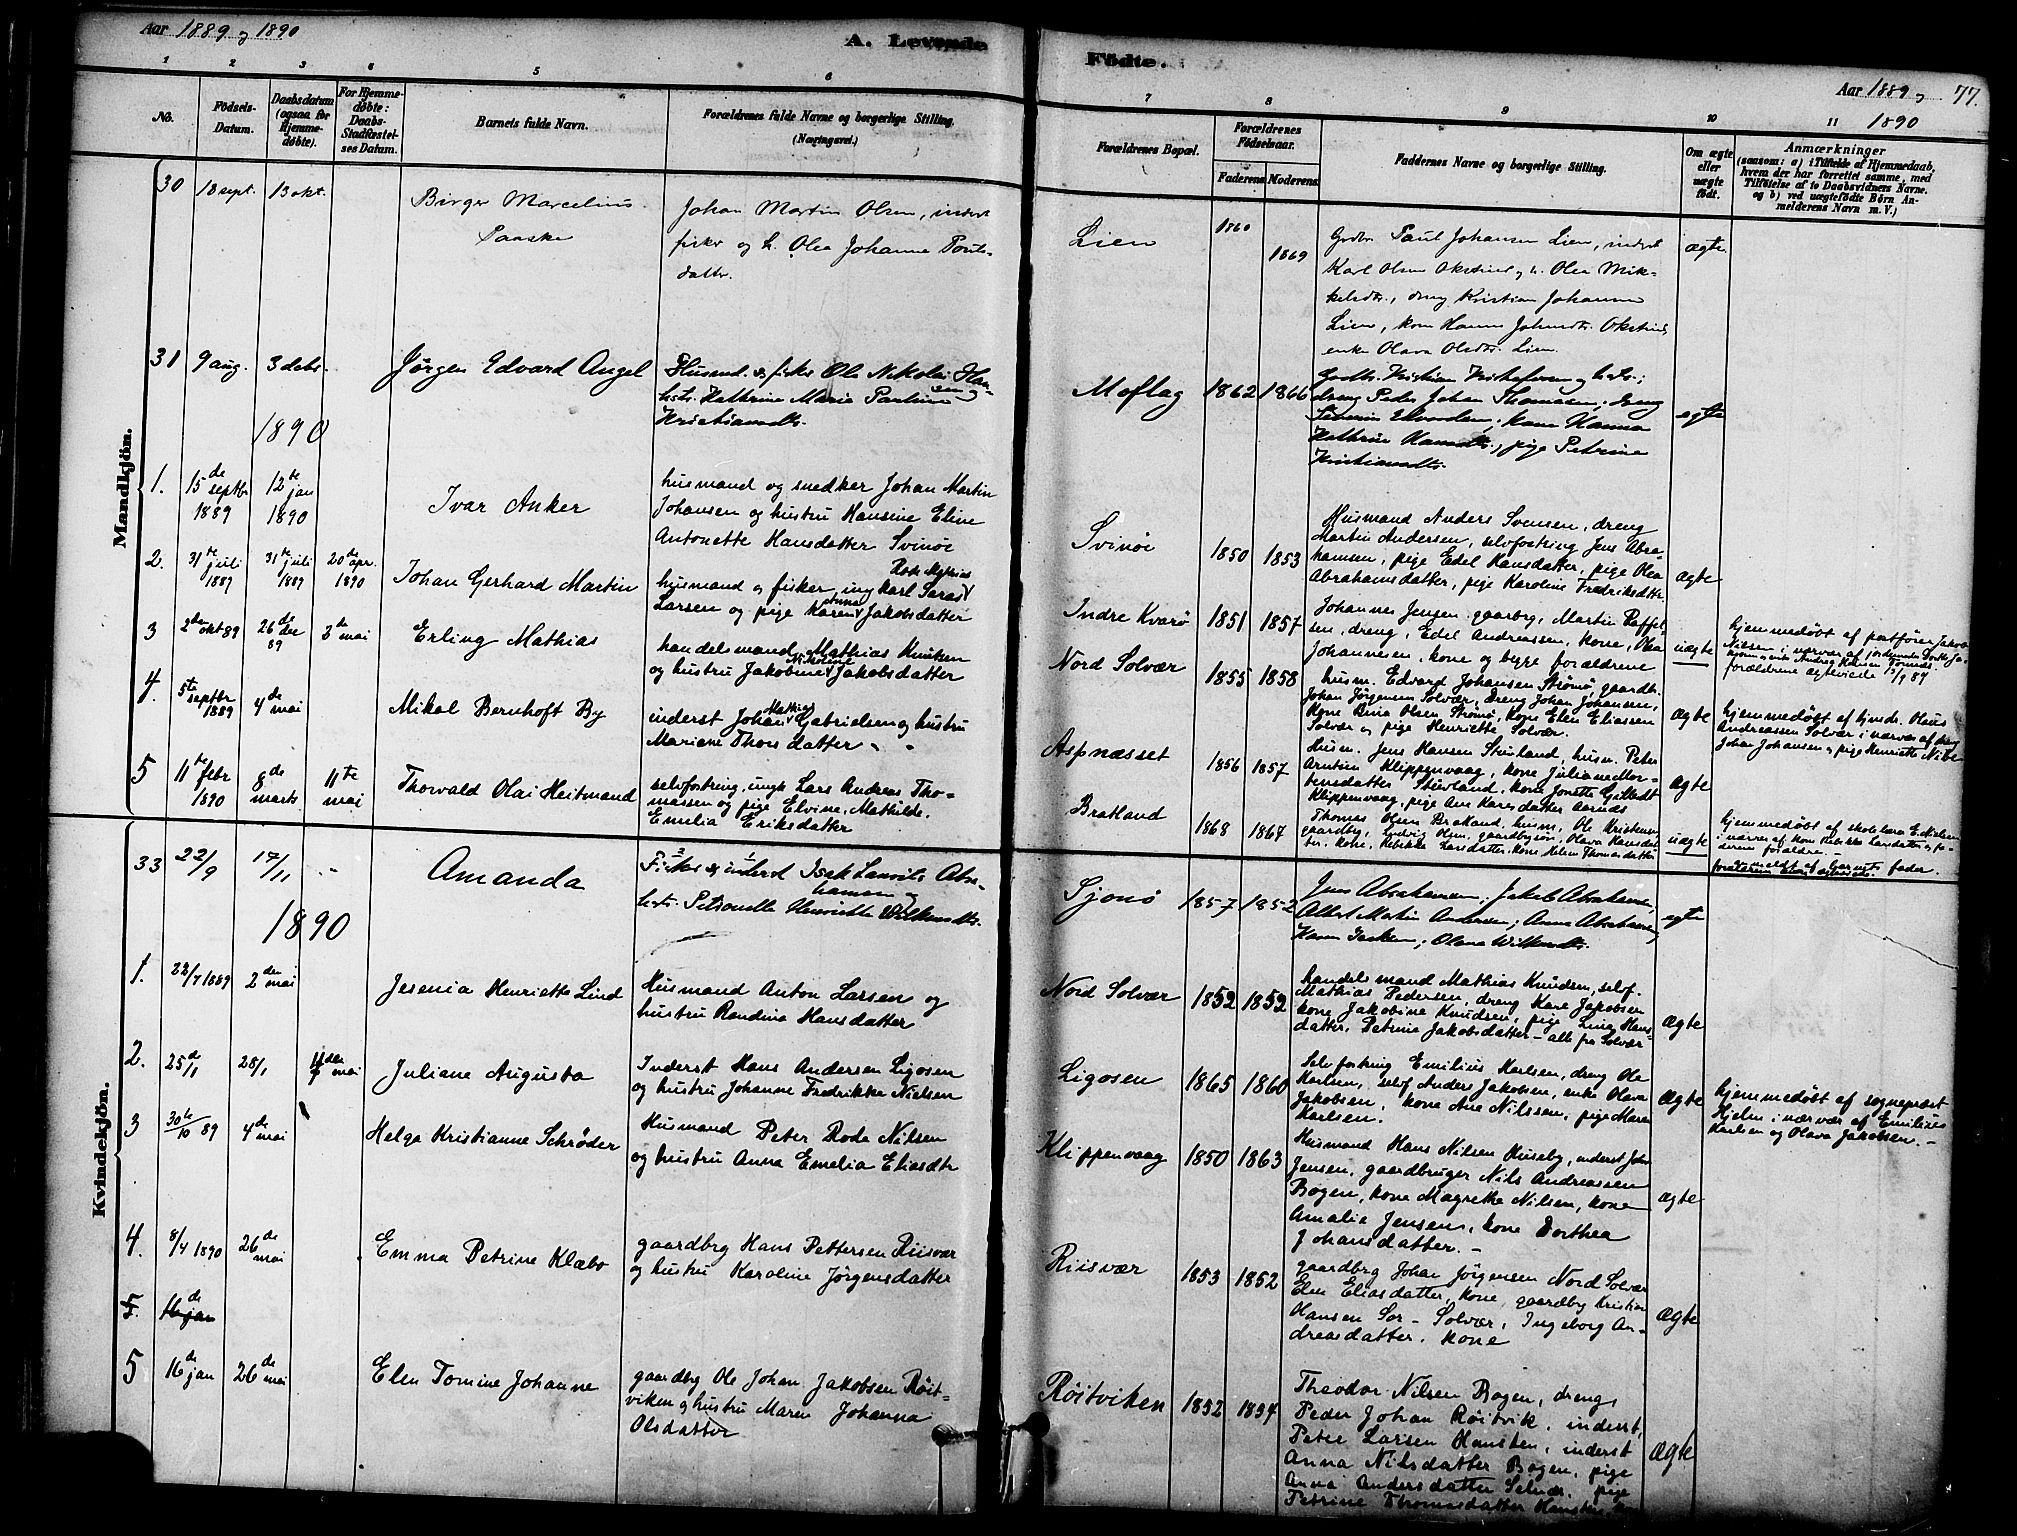 Aar 1889 og 1890
A. Levende
Födte.
Aar 1889 og 1890
77.
1 2 3 4 5 6
7 8 9 10 11
No.
Födsels-Datum.
Daabsdatum (ogsaa for Hjemmedøbte).
For Hjemmedøbte: Daabs-Stadfæstelses Datum.
Barnets fulde Navn.
Forældrenes fulde Navne og borgerlige Stilling. (Næringsvei.)
Forældrenes Bopæl.
Forældrenes Födselsaar.
Faderens Moderens
Faddernes Navne og borgerlige Stilling.
Om ægte eller uægte födt.
Anmærkninger
(saasom: a) i Tilfælde af Hjemmedaab, hvem der har forrettet samme, med Tilföielse af to Daabsvidners Navne. og b) ved uægtefödte Börn Anmelderens Navn m. V.)
Mandkjön.
30 18 sept. 13 okt.
Birger Marcelius
Paaske
Johan Martin Olsen, inderst
fisker og h. Olea Johanna Pouls-
datter.
Lien 1860 1869
Grdbr. Paul Johansen Lien, inderst
Karl Olsen Okstind og h. Olea Mik-
kelsdtr., dreng Kristian Johansen
Lien, kone Hanna Johnsdtr. Okstind,
enke Olava Olsdtr. Lien.
ægte
31 9 aug. 3 debr.
Jörgen Edvard Angel
Husmd. & fisker Ole Nikolai Han-
sen og
hstr. Kathrine Marie Pauline
Kristiansdtr.
Moflag 1862 1866
Grdbr. Kristian Kristofersen og hstr.;
dreng Peder Johan Thomasen; dreng
Severin Edvardsen; kone Hanna
Kathrine Hansdtr.; pige Petrine
Kristiansdtr.
ægte
1890
1. 15de septbr 1889 12te jan 1890
Ivar Anker
husmand og snedker Johan Martin
Johansen og hustru Hansine Eline
Antonette Hansdatter Svinöe
Svinöe 1850 1853
Husmand Anders Svensen, dreng
Martin Andersen, selvfostring Jens Abra-
hamsen, pige Edel Hansdatter, pige Olea
Abrahamsdatter, pige Karoline Fredriksdtr.
ægte
2. 31te juli 1889 31te juli 1889 20de apr. 1890
Johan Gerhard Martin
husmand og fisker, ung Karl Saras
Larsen og pige Karen Anna Jakobsdatter
Indre Kvarö 1851 1857
Johannes Jensen gaardbg, Martin
sen, dreng, Edel Andreassen, kone, Olea
Johannesen, kone og begge forældrene
uægte
hjemmedøbt af
Nilsen i nærvær af jordemoder Dorthe Ja-
3 2den okt 89 26de dec 89 3de mai
Erling Mathias
handelsmand Mathias Knutsen
og hustru Jakobine Nikoline Jakobsdatter
Nord Solvær 1855 1858
husm. Edvard Johansen Strömö, gaardb.
Johan Jörgensen Solvær, Dreng Johan Johansen,
Kone Rina Olsen Strömö, Kone Elen Eliassen
Solvær og pige Henriette Solvær.
ægte
hjemmedøbt af Olaus
Andreassen Solvær i nærvær af dreng
Johan Johansen og pige Henriette
4. 5te septbr 1889 4de mai
Mikal Bernhoft By
inderst Johan Mathias Gabrielsen og hustru
Mariane Thorsdatter
Aspnæsset 1856 1857
Husm. Jens Hansen Stuvland, husm. Peter
Arntsen Klippenvaag, kone Juliane Mor-
tensdatter Stuvland, kone Jonette
Klippenvaag, pige Ane Karesdatter Aarnes
ægte
5 11te febr 1890 8de marts 11te mai
Thorvald Olai Heitmand
selvfostring, ungk Lars Andreas Tho-
massen og pige Elvine, Mathilde.
Emelia Eriksdatter
Bratland 1868 1867
Thomas Olsen Bratland, husm, Ole Kristensen,
gaardbg, Ludvig Olsen, gaardbgsön, Olava Hansdat-
ter, kone, Rebekka Larsdatter, kone Helen Thomasdatter
uægte
hjemmedøbt af skolelærer E. Nielsen
i nærvær af kone Rebekka Larsdatter og fa-
derens forældre.
anmeldt af barnets fader.
Kvindekjön.
33 22/9 17/11
Amanda
Fisker & inderst Isak Laurits Abra-
hamsen og
hstr. Petronella Henrikke Wilhelmsdtr.
Sjonö 1857 1852
Jens Abrahamsen; Jakob Abrahamsen,
Albert Martin Andersen; Anna Abrahamsen;
Karen Isaksen; Olena Wilhelmsdtr.
ægte
1890
1. 22/7 1889 2den mai
Jesenia Henriette Lind
Husmand Anton Larsen og
hustru Rondina Hansdatter
Nord Solvær 1852 1852
handelsmand Mathias Knudsen, self.
Mathias Pedersen, dreng Kare Jakobsen
kone Jakobine Knudsen, pige Lina Hans-
datter, Petrine Jakobsdatter – alle fra Solvær
ægte
2. 25de/1 28/1 4den mai
Juliane Augusta
Inderst Hans Andersen Ligosen
og hustru Johanne Fredrikke Nielsen
Ligosen 1865 1860
Selvfostring Emilius Karlsen, dreng Ole
Karlsen, selvf Anders Jakobsen, enke Olava
Jakobsen, kone Ane Nilssen, pige Maren
Karlsen.
ægte
hjemmedöbt af sogneprest
Hjelm i nærvær af Emilius
Karlsen og Olava Jakobsen. –
3 30te/10 89 4de mai
Helga Kristianne Schrøder
Husmand Peter Roda Nilsen
og hustru Anna Emelia Eliasdtr
Klippenvaag 1850 1863
Husmand Hans Nilsen Huseby, inderst John
Jensen, gaardbruger Nils Andreassen
Bogen, kone Magrethe Nilsen, kone
Amalie Jensen, kone Dorthea
Johansdatter. –
ægte
4. 8/4 1890 26de mai
Emma Petrine Klæbo
gaardbrg Hans Pettersen Riisvær
og hustru Karoline Jörgensdatter
Riisvær 1853 1852
gaardbrg Johan Jörgensen Nord Solvær
Elen Eliasdatter, kone, gaardbg Kristian
Hansen Sör-Solvær, Ingeborg An-
dreasdatter, kone
ægte
5. 16de jan
5 16de jan 26de mai
Elen Tomine Johanne
gaardbg Ole Johan Jakobsen Röit-
viken og hustru Maren Johanna
Olsdatter
Röitviken 1852 1854
Theodor Nilsen Bogen, dreng,
Peder Johan Röitvik, inderst,
Peter Larsen Hansten, inderst
Anna Nilsdatter Bogen, pige
Anna Andersdatter Selvær, pige
Petrine Thomasdatter
ægte